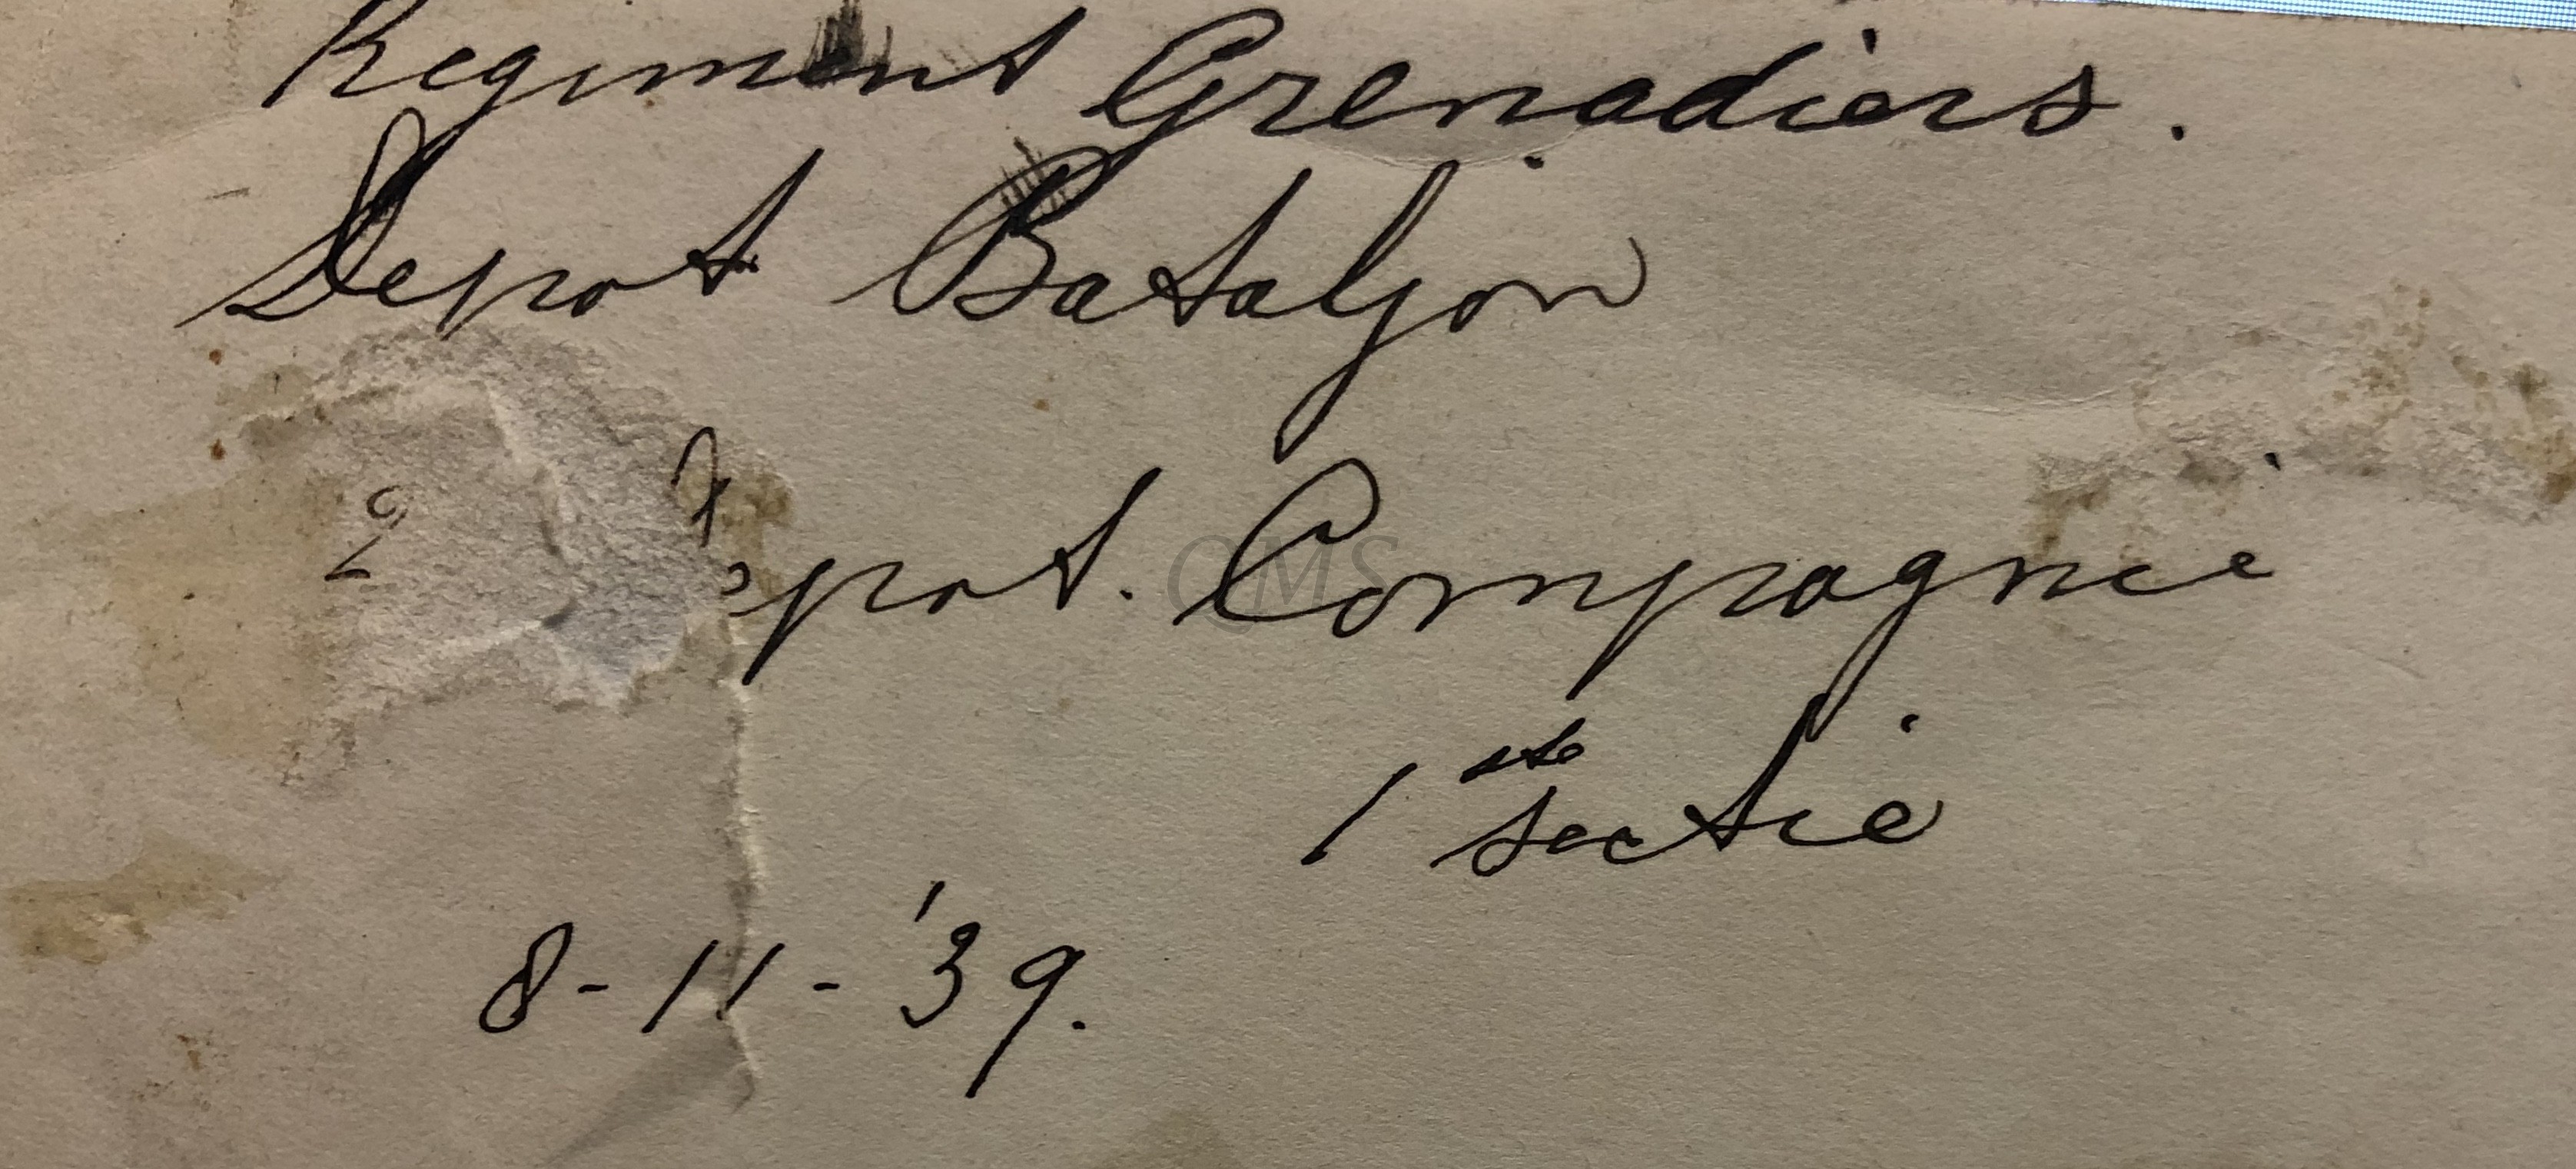 Regiment Grenadiers.
Depot Bataljon
2 Depot. Compagnie
1ste sectie
8-11-'39.
QMS